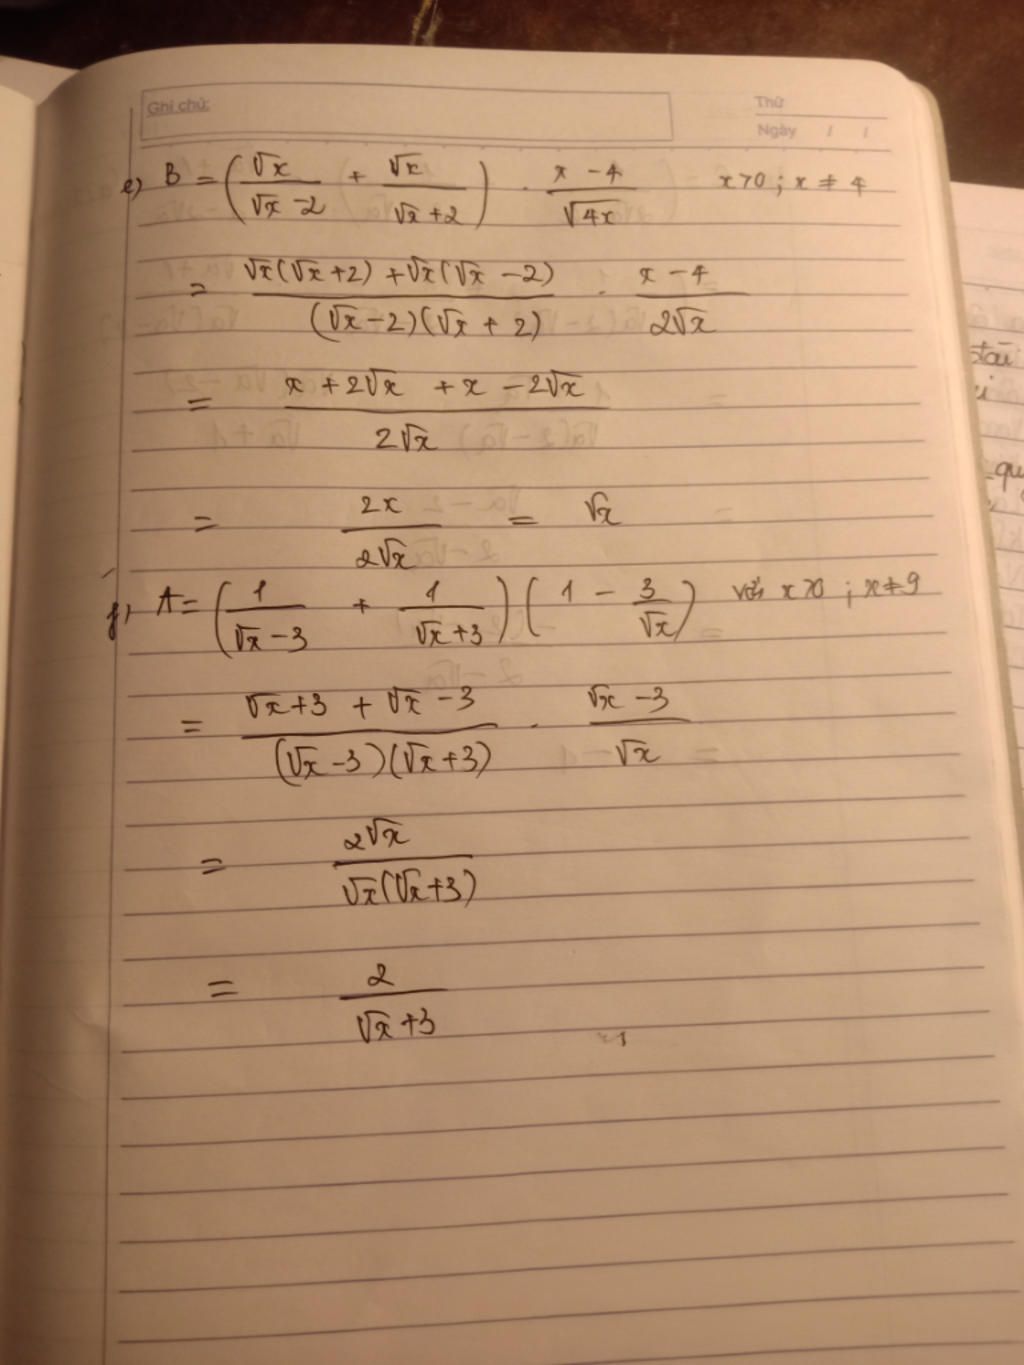 Ghi chú:
Thứ
Ngày / /
e) B = (√x/(√x - 2) + √x/(√x + 2)) . (x - 4)/√4x x > 0 ; x ≠ 4
= (√x(√x + 2) + √x(√x - 2))/((√x - 2)(√x + 2)) . (x - 4)/2√x
= (x + 2√x + x - 2√x)/2√x
= 2x/2√x = √x
f, A = (1/(√x - 3) + 1/(√x + 3)) (1 - 3/√x) với x > 0 ; x ≠ 9
= (√x + 3 + √x - 3)/((√x - 3)(√x + 3)) . (√x - 3)/√x
= 2√x/(√x(√x + 3))
= 2/(√x + 3)